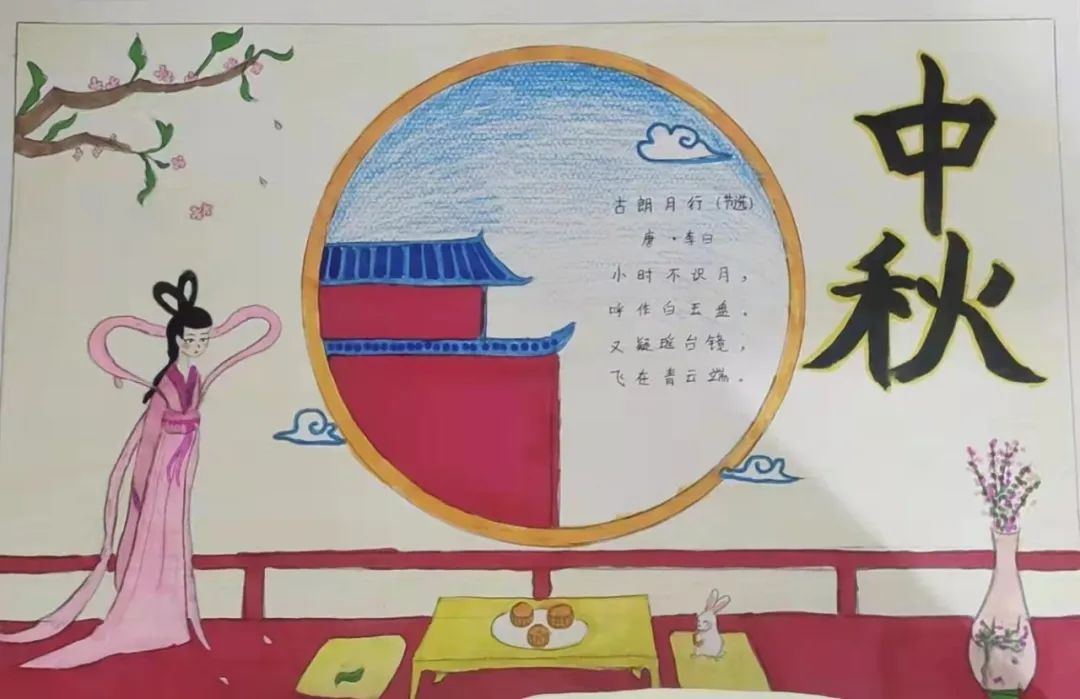 中秋
古朗月行（节选）
唐·李白
小时不识月，
呼作白玉盘。
又疑瑶台镜，
飞在青云端。